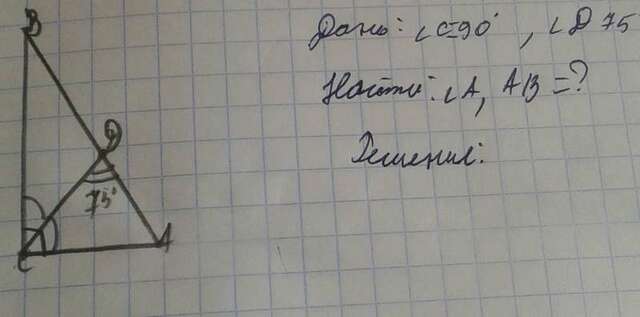 B
Дано: ∠C=90°, ∠D 75
Найти: ∠A, AB=?
D
Решение:
75°
A
C